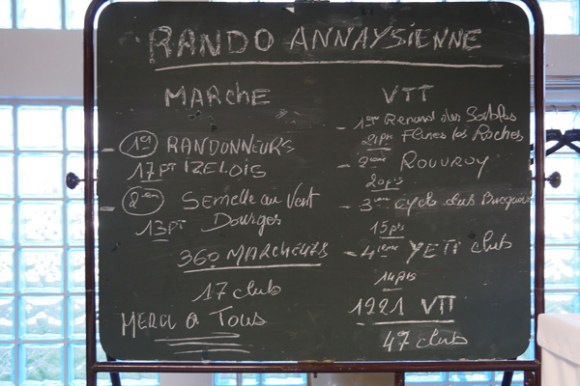 RANDO ANNAYSIENNE
MARCHE
- 19 RANDONNEURS
17 PT IZELOIS
2en Semelle au Vent
13 PT Dourges
360 MARCHEURS
17 club
MERCI a Tous
VTT
- 1er Renard des
21 pts Flines les Roches
- 2ème ROUVROY
20 pts
- 3ème cyclo des
15 pts
- 4ième YETI club
14 pts
1221 VTT
47 club